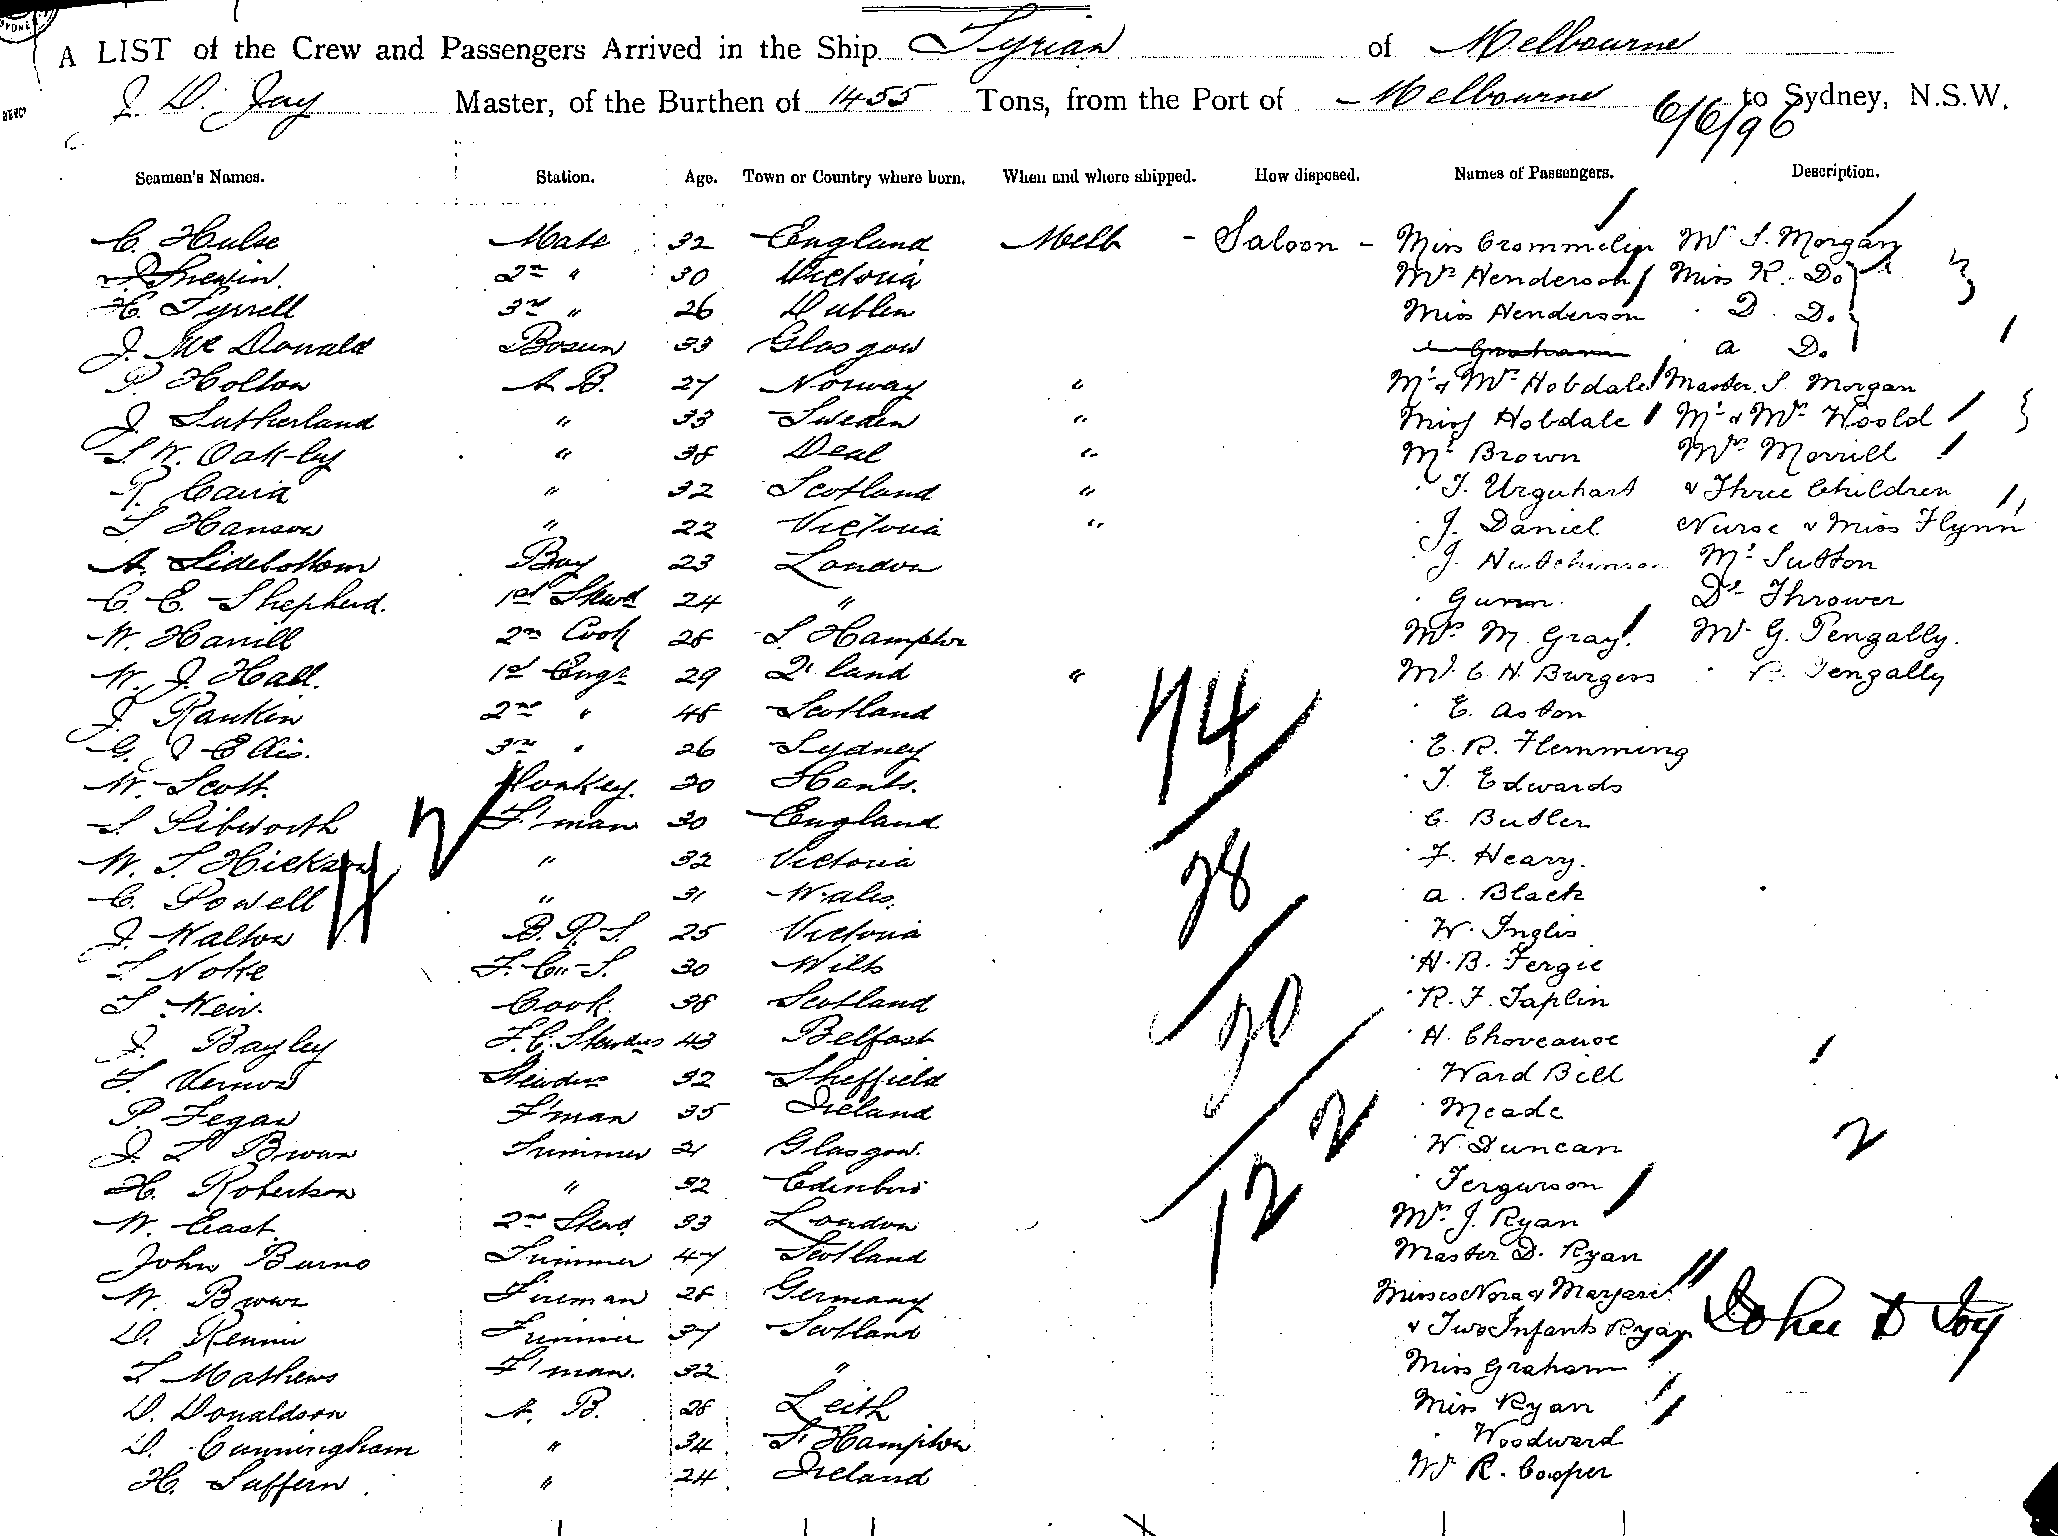 A LIST of the Crew and Passengers Arrived in the Ship Tyrian of Melbourne
J. D. Joy Master, of the Burthen of 1455 Tons, from the Port of Melbourne to Sydney, N.S.W.
6/6/96
Seamen's Names. Station. Age. Town or Country where born. When and where shipped. How disposed. Names of Passengers. Description.
C. Hulse Mate 32 England Melb - Saloon - Miss Crommelin Mr S. Morgan
2nd " 30 Victoria Mrs Henderson Miss K. Do
H. Tyrrell 3rd " 26 Dublin Miss Henderson D. Do
J. Mc Donald Bosun 33 Glasgow " Graham A Do
P. Holton A. B. 27 Norway " Mr & Mrs Hobdale Master S. Morgan
J. Sutherland " 33 Sweden " Miss Hobdale Mr & Mrs Woold
S W. Oakley " 38 Deal " Mr Brown Mrs Merrill
R. " 32 Scotland " " T. Urquhart & Three Children
S Hanson " 22 Victoria " " J. Daniel Nurse & Miss Flynn
A. Sidebottom Boy 23 London " J. Hutchinson Mr Sutton
C. E. Shepherd. 1st Stewd 24 " " Gunn. Dr Thrower
W. Hamill 2nd Cook 28 S. Hampton Mrs M. Gray Mr G. Pengally.
W. J. Hall. 1st Engr 29 Q'land " Mr C. H. Burgess " P. Pengally
J. Rankin 2nd " 48 Scotland " E. Aston
G. J Ellis. 3rd " 26 Sydney " E. R. Flemming
W. Scott. Donkey. 30 Hants. " T. Edwards
S Pibworth F'man 30 England " C. Butler
W. S. Hickson " 32 Victoria " F. Heary.
C. Powell " 31 Wales. " A. Black
J. Walton B. R. S. 25 Victoria " W. Inglis
S. Noke F. C. S. 30 Wilts " H. B. Fergie
S Weir. Cook. 38 Scotland " R. F. Taplin
J. Bayley F. C. Stewdess 43 Belfast " H.
S. Vernon Stewdess 32 Sheffield " Ward Bill
P. Fegan F'man 35 Ireland " Meade
J. L Brown Trimmer 21 Glasgow. " W. Duncan
H. Robertson " 32 Edinburo " Fergurson
W. East. 2nd Stewd 33 London Mrs J. Ryan
John Burns Trimmer 47 Scotland Master D. Ryan
W. Brown Fireman 28 Germany Misses Nora & Margaret
D. Rennie Trimmer 37 Scotland & Two Infants Ryan
S Mathews F'man. 32 " Miss Graham
D. Donaldson A. B. 28 Leith Miss Ryan
D. Cunningham " 34 S. Hampton " Woodward
H. Saffern " 24 Ireland Mr R. Cooper
74
28
20
2
122
2
John D Joy